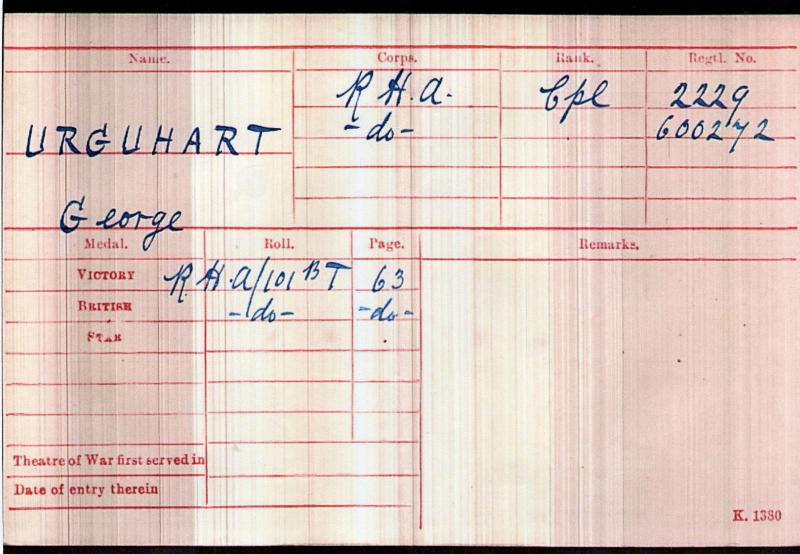 Name. Corps. Rank. Regtl. No.
R.H.A. Cpl 2229
-do- 600272
URGUHART
George
Medal. Roll. Page. Remarks.
VICTORY R.H.A/101 BT 63
BRITISH -do- -do-
STAR
Theatre of War first served in
Date of entry therein
K. 1380